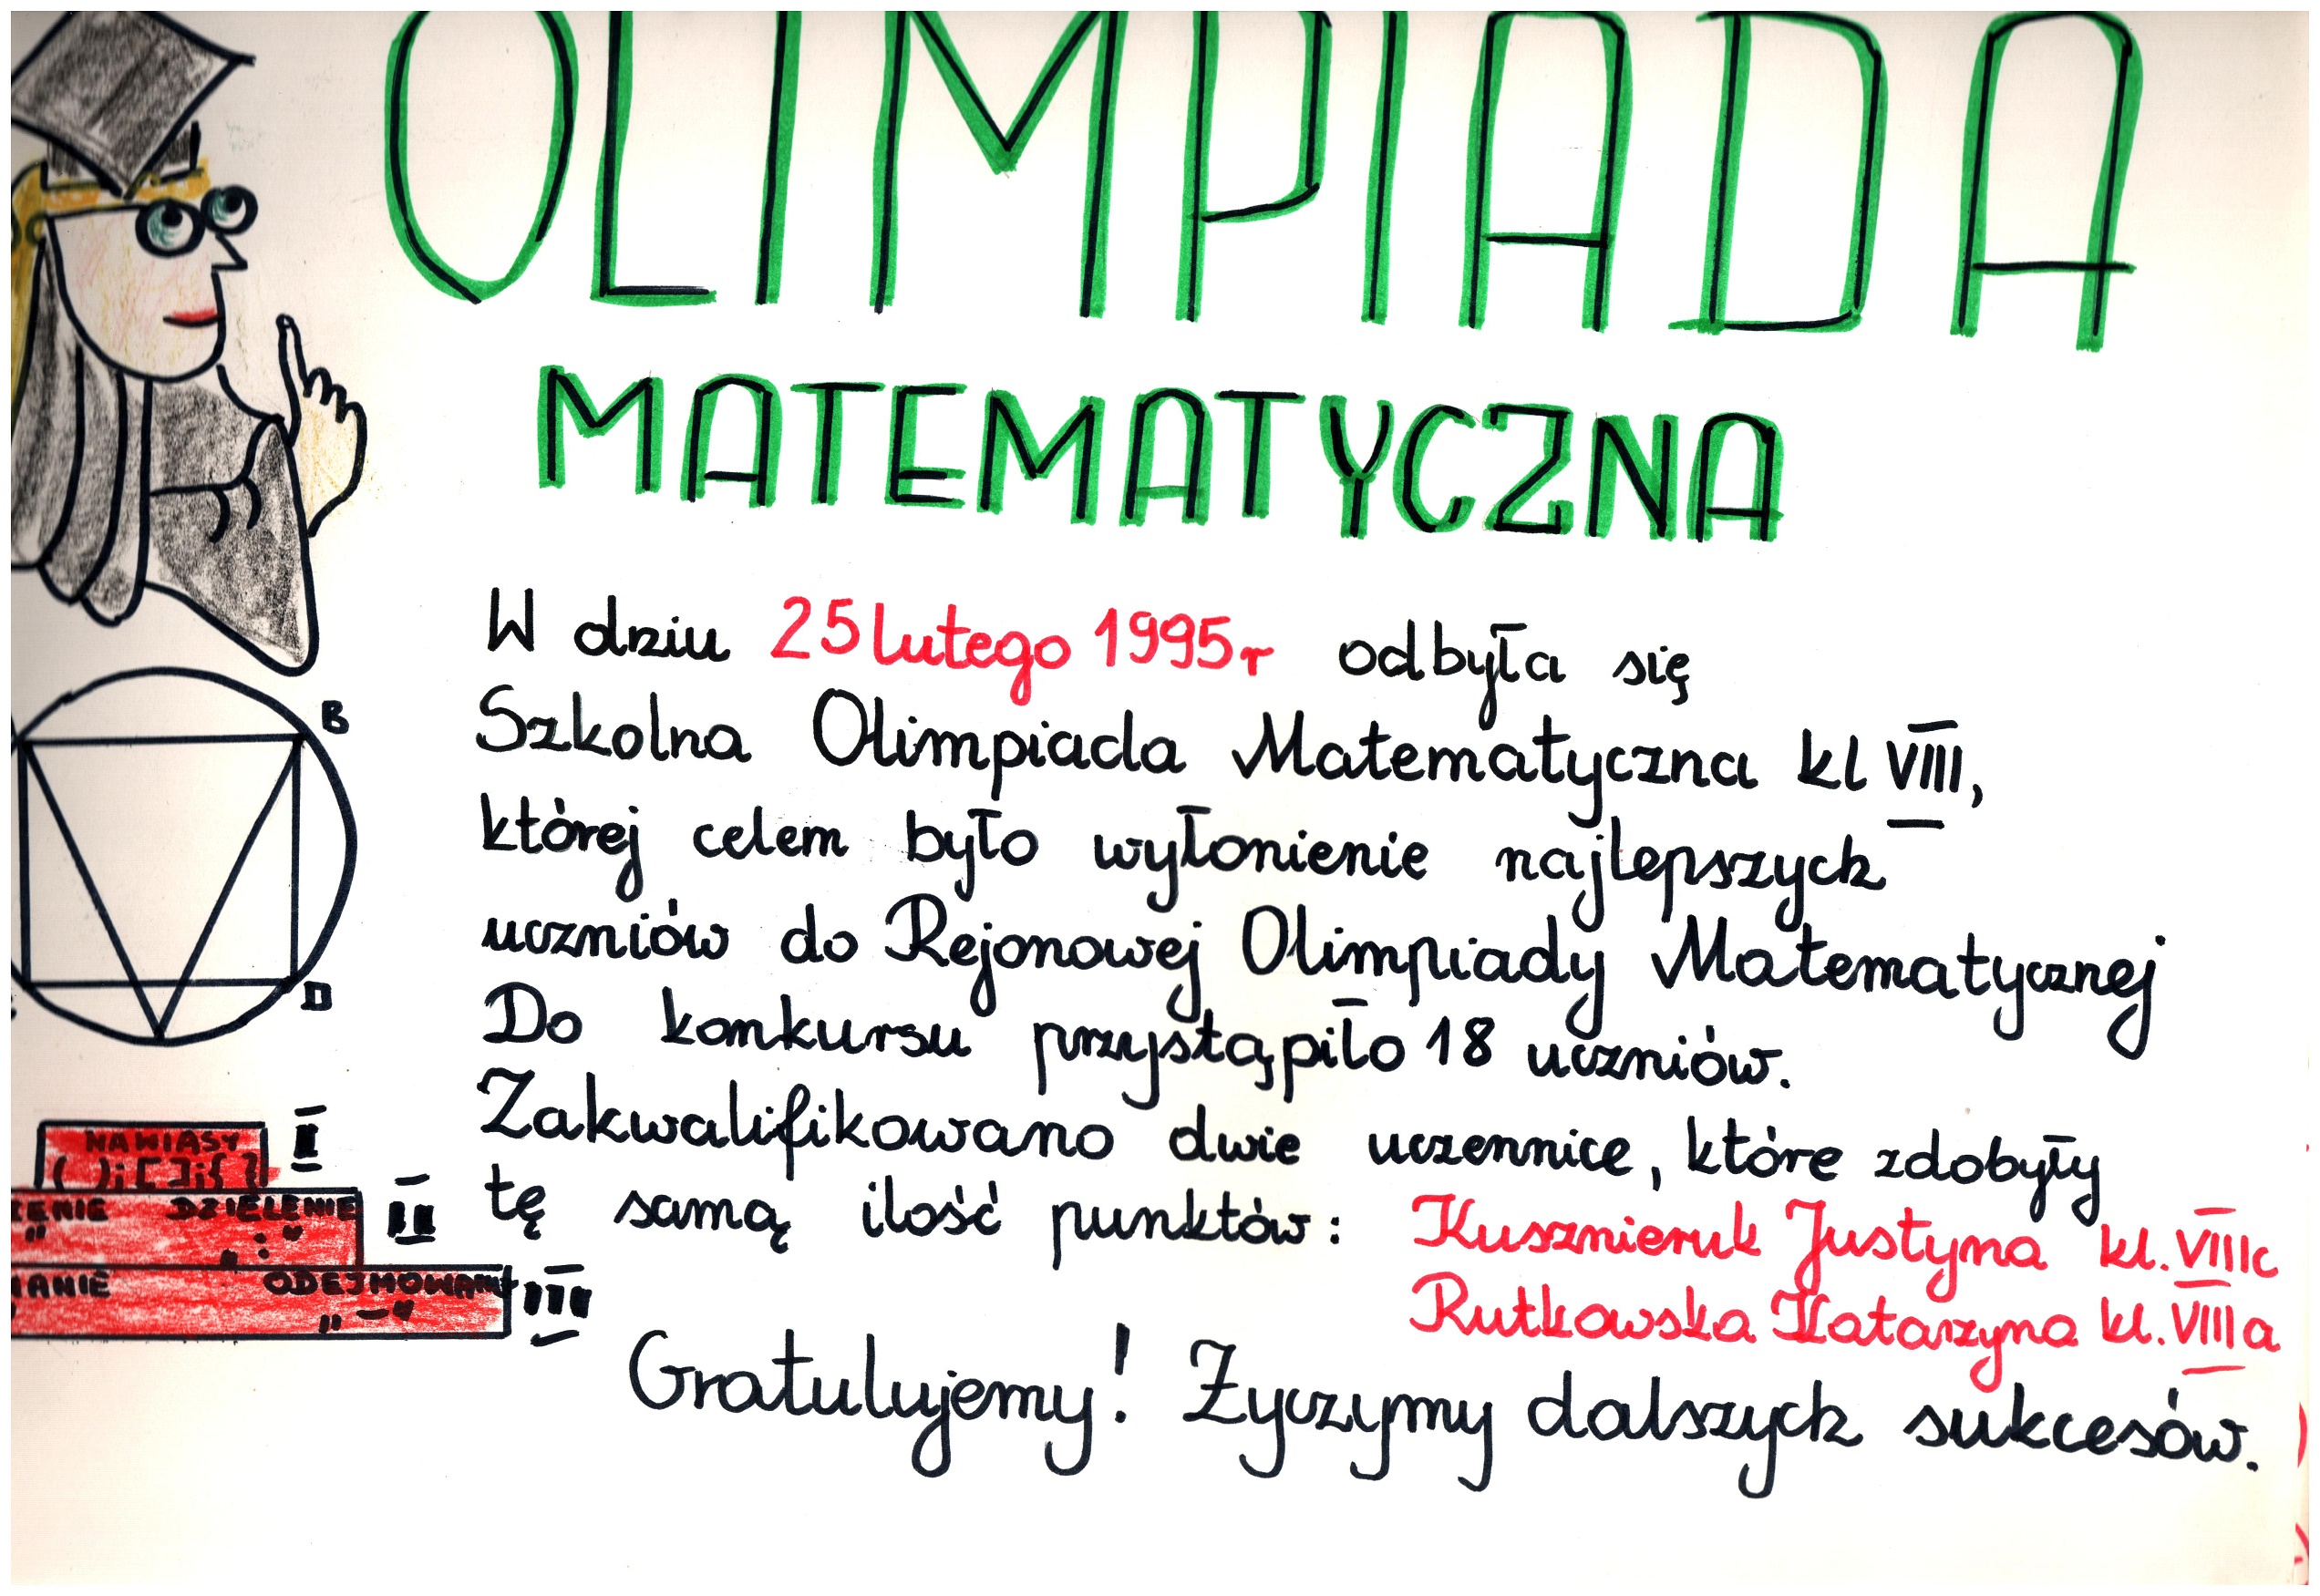 OLIMPIADA
MATEMATYCZNA
W dniu 25 lutego 1995r odbyła się
Szkolna Olimpiada Matematyczna kl VIII,
której celem było wyłonienie najlepszych
uczniów do Rejonowej Olimpiady Matematycznej
Do konkursu przystąpiło 18 uczniów.
Zakwalifikowano dwie uczennice, które zdobyły
tę samą ilość punktów: Kusznieruk Justyna kl. VIIIc
Rutkowska Katarzyna kl. VIIIa
Gratulujemy! Życzymy dalszych sukcesów.
B
D
NAWIASY I
( ); [ ]; { }
ŻENIE DZIELENIE II
" „:"
ANIE ODEJMOWANIE III
„—"